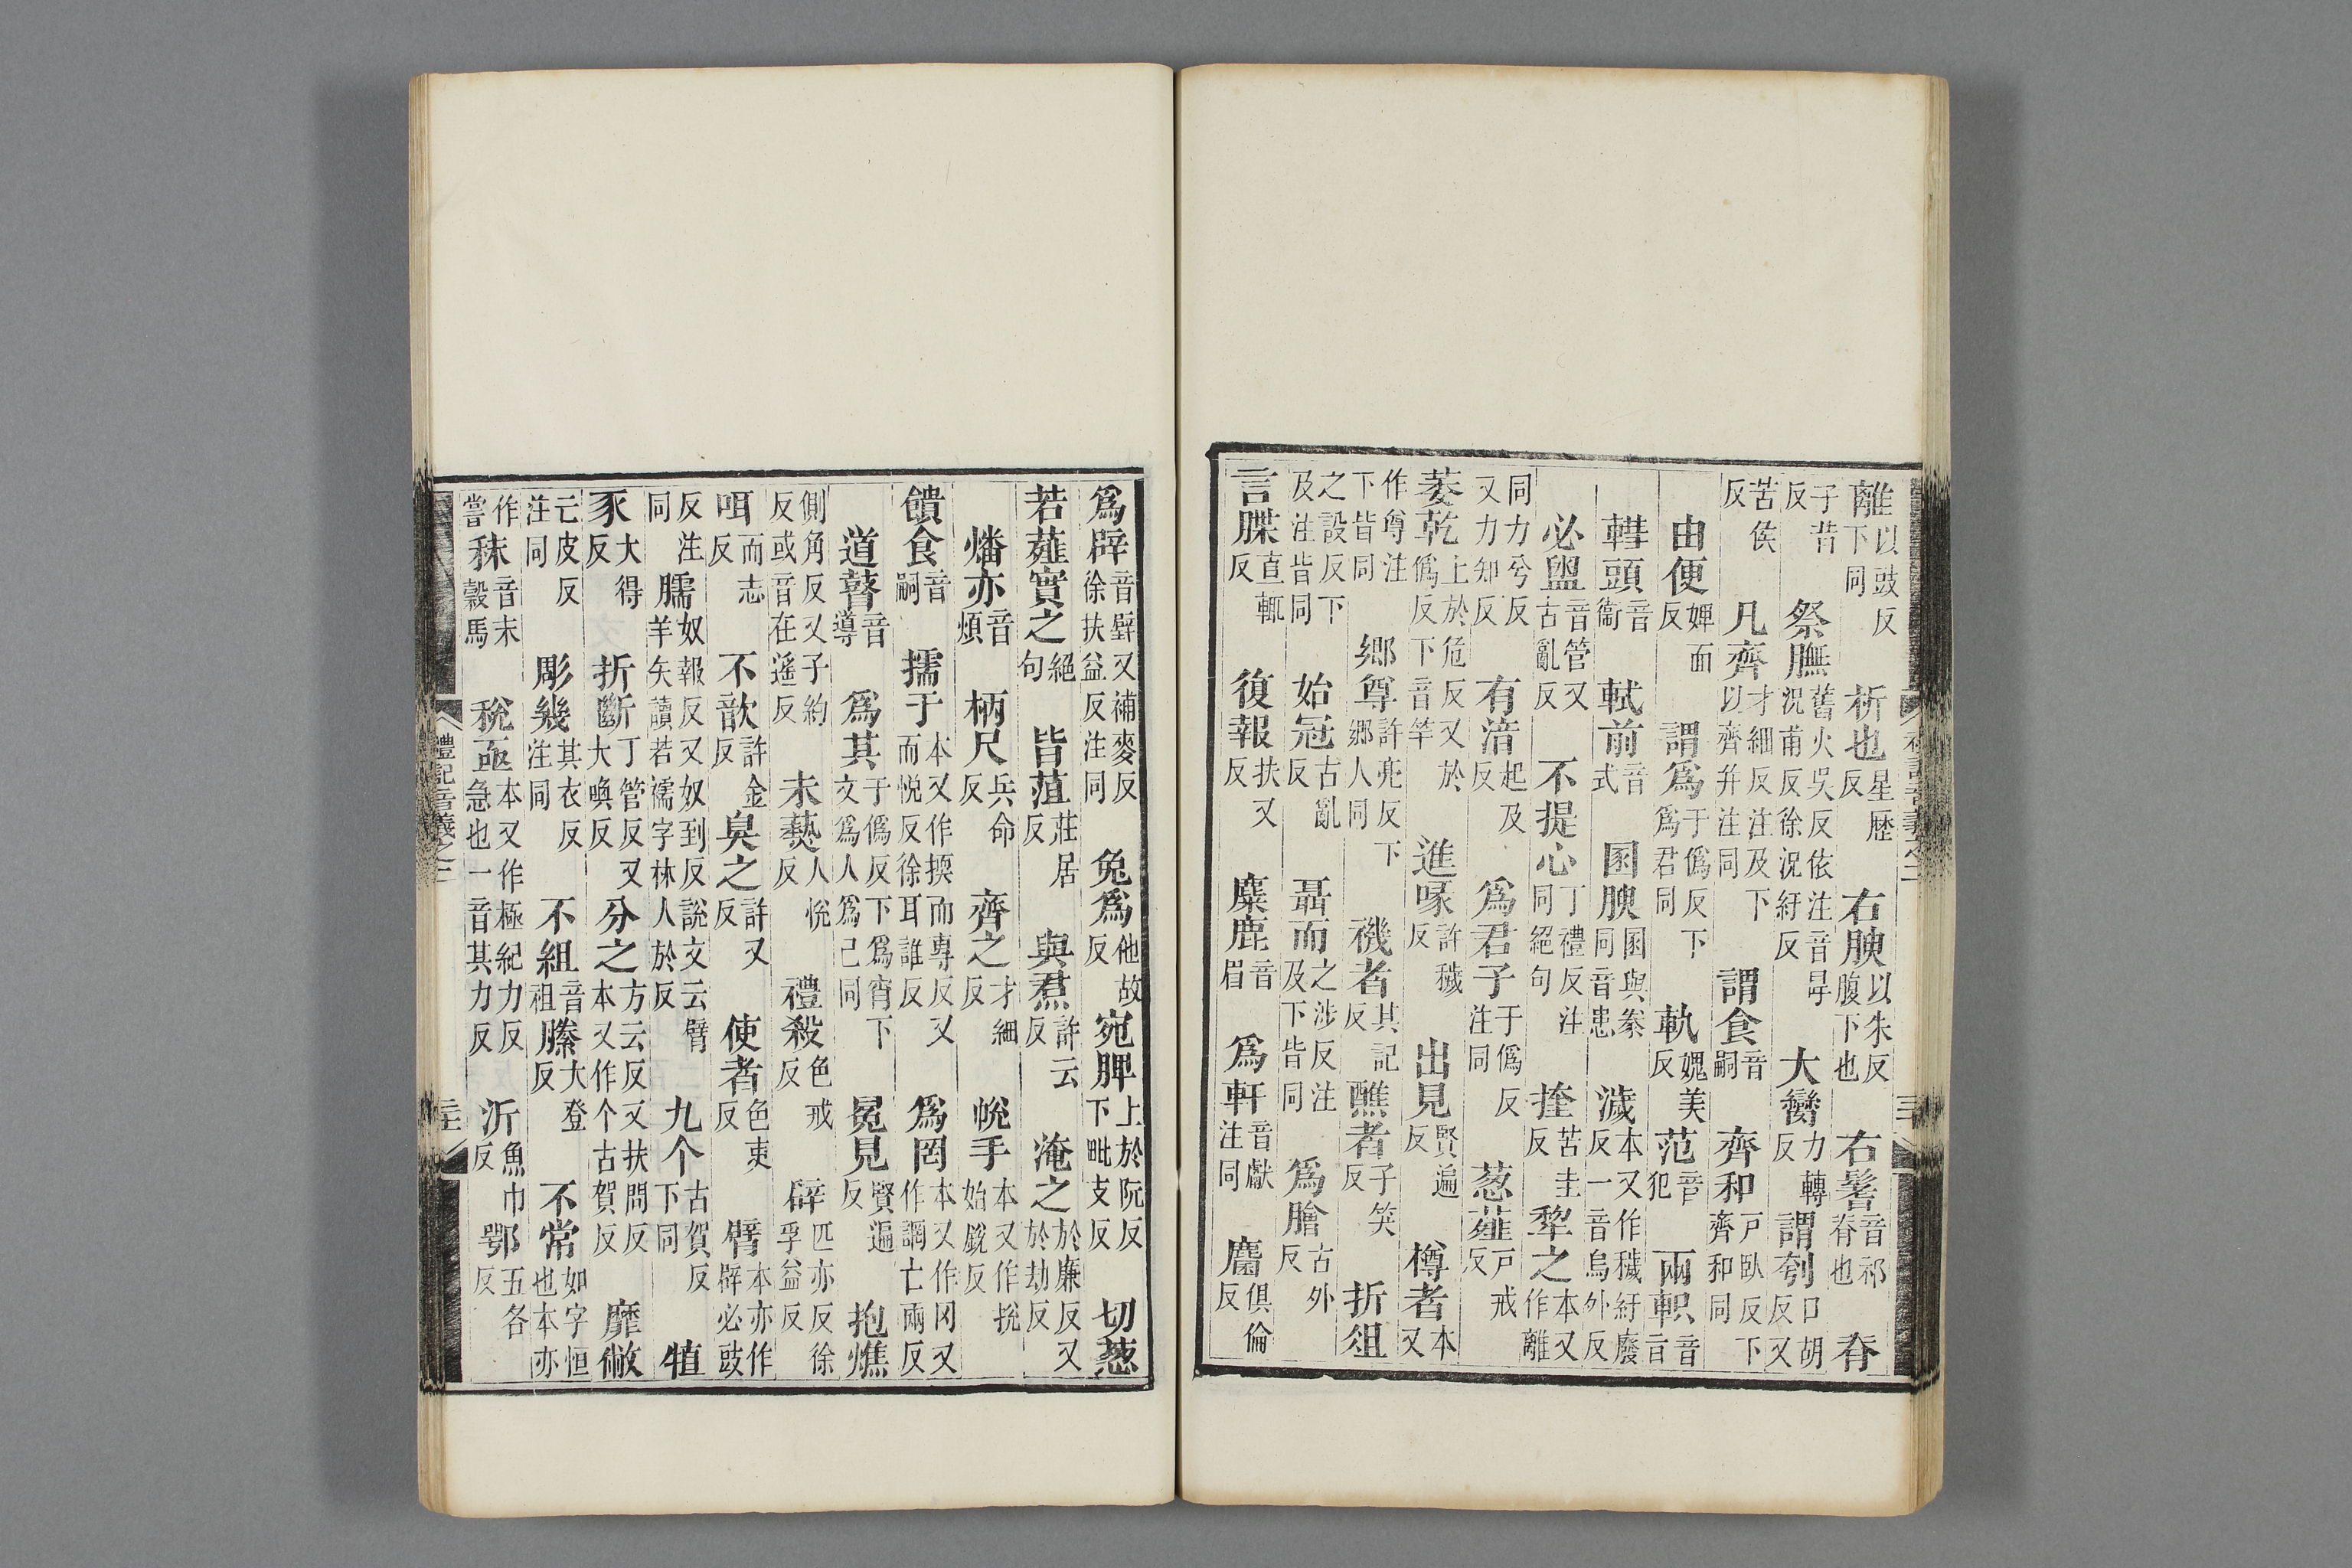 離以豉反下同 析也星歷反 右腴以朱反腹下也 右鬐音祁脊也 脊
子昔反 祭膴舊火吳反依注音冔況甫反徐況紆反 大臠力轉反 謂刳口胡反又
苦侯反 凡齊才細反注及下以齊并注同 謂食音嗣 齊和戶臥反下齊和同
由便婢面反 謂爲于僞反下爲君同 軌媿美反 范音犯 兩軹音旨
轊頭音衞 軾前音式 圂腴圂與豢同音患 濊本又作穢紆廢反一音烏外反
必盥音管又古亂反 不提心丁禮反注同絕句 㨒苦圭反 犂之本又作離
同力兮反又力知反 有湆起及反 爲君子于僞反注同 葱薤戶戒反
萎乾上於危反又於僞反下音竿 進喙許穢反 出見賢遍反 樽者本又
作尊注下皆同 鄉尊許亮反下鄉人同 禨者其記反 醮者子笑反 折俎
之設反下及注皆同 始冠古亂反 聶而之涉反注及下皆同 爲膾古外反
言牒直輒反 復報扶又反 麋鹿音眉 爲軒音獻注同 麕俱倫反
禮記音義之三
爲辟音壁又補麥反徐扶益反注同 兔爲他故反 宛脾上於阮反下毗支反 切葱
若薤實之絕句 皆菹莊居反 與焄許云反 淹之於廉反又於劫反
燔亦音煩 柄尺兵命反 齊之才細反 帨手本又作挩始銳反
饋食音嗣 擩于本又作㨎而專反又而悅反徐耳誰反 爲罔本又作冈又作誷亡兩反
道瞽音導 爲其于僞反下爲宵下文爲人爲己同 冕見賢遍反 抱燋
側角反又子約反或音在遙反 未爇人悅反 禮殺色戒反 辟匹亦反徐孚益反
咡而志反 不歆許金反 臭之許又反 使者色吏反 臂本亦作辟必豉
反注同 臑奴報反又奴到反說文云臂羊矢讀若襦字林人於反 九个古賀反下同 犆
大得反 豕 折斷丁管反又大喚反 分之方云反又扶問反本又作个古賀反 靡敝
亡皮反注同 彫幾其衣反注同 不組音祖縢大登反 不常如字恒也本亦
作嘗 秣音末穀馬 稅亟本又作極紀力反急也一音其力反 沂魚巾反 鄂五各反
禮記音義之三